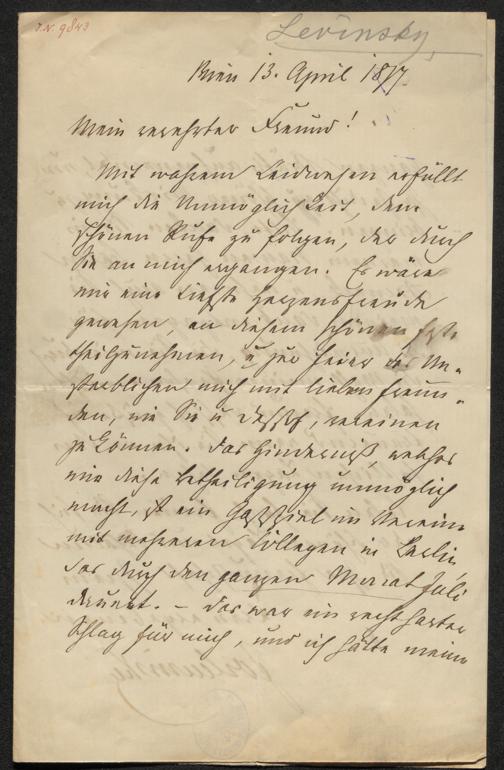 J.N. 9843
Levinsky
Wien 13. April 1877.
Mein verehrter Freund!
Mit wahrem Leidwesen erfüllt
mich die Unmöglichkeit, dem
schönen Rufe zu folgen, der durch
Sie an mich ergangen. Es wäre
mir eine tiefste Herzensfreude
gewesen, an diesem schönen Feste
theilzunehmen, u zur Feier des Un-
sterblichen mich mit lieben Freun-
den, wie Sie u vereinen
zu können. Das Hinderniß, welches
mir diese Betheiligung unmöglich
macht, ist ein Gastspiel im Vereine
mit mehreren Collegen in Berlin,
das durch den ganzen Monat Juli
dauert. – Das war ein recht harter
Schlag für mich, und ich hätte meine